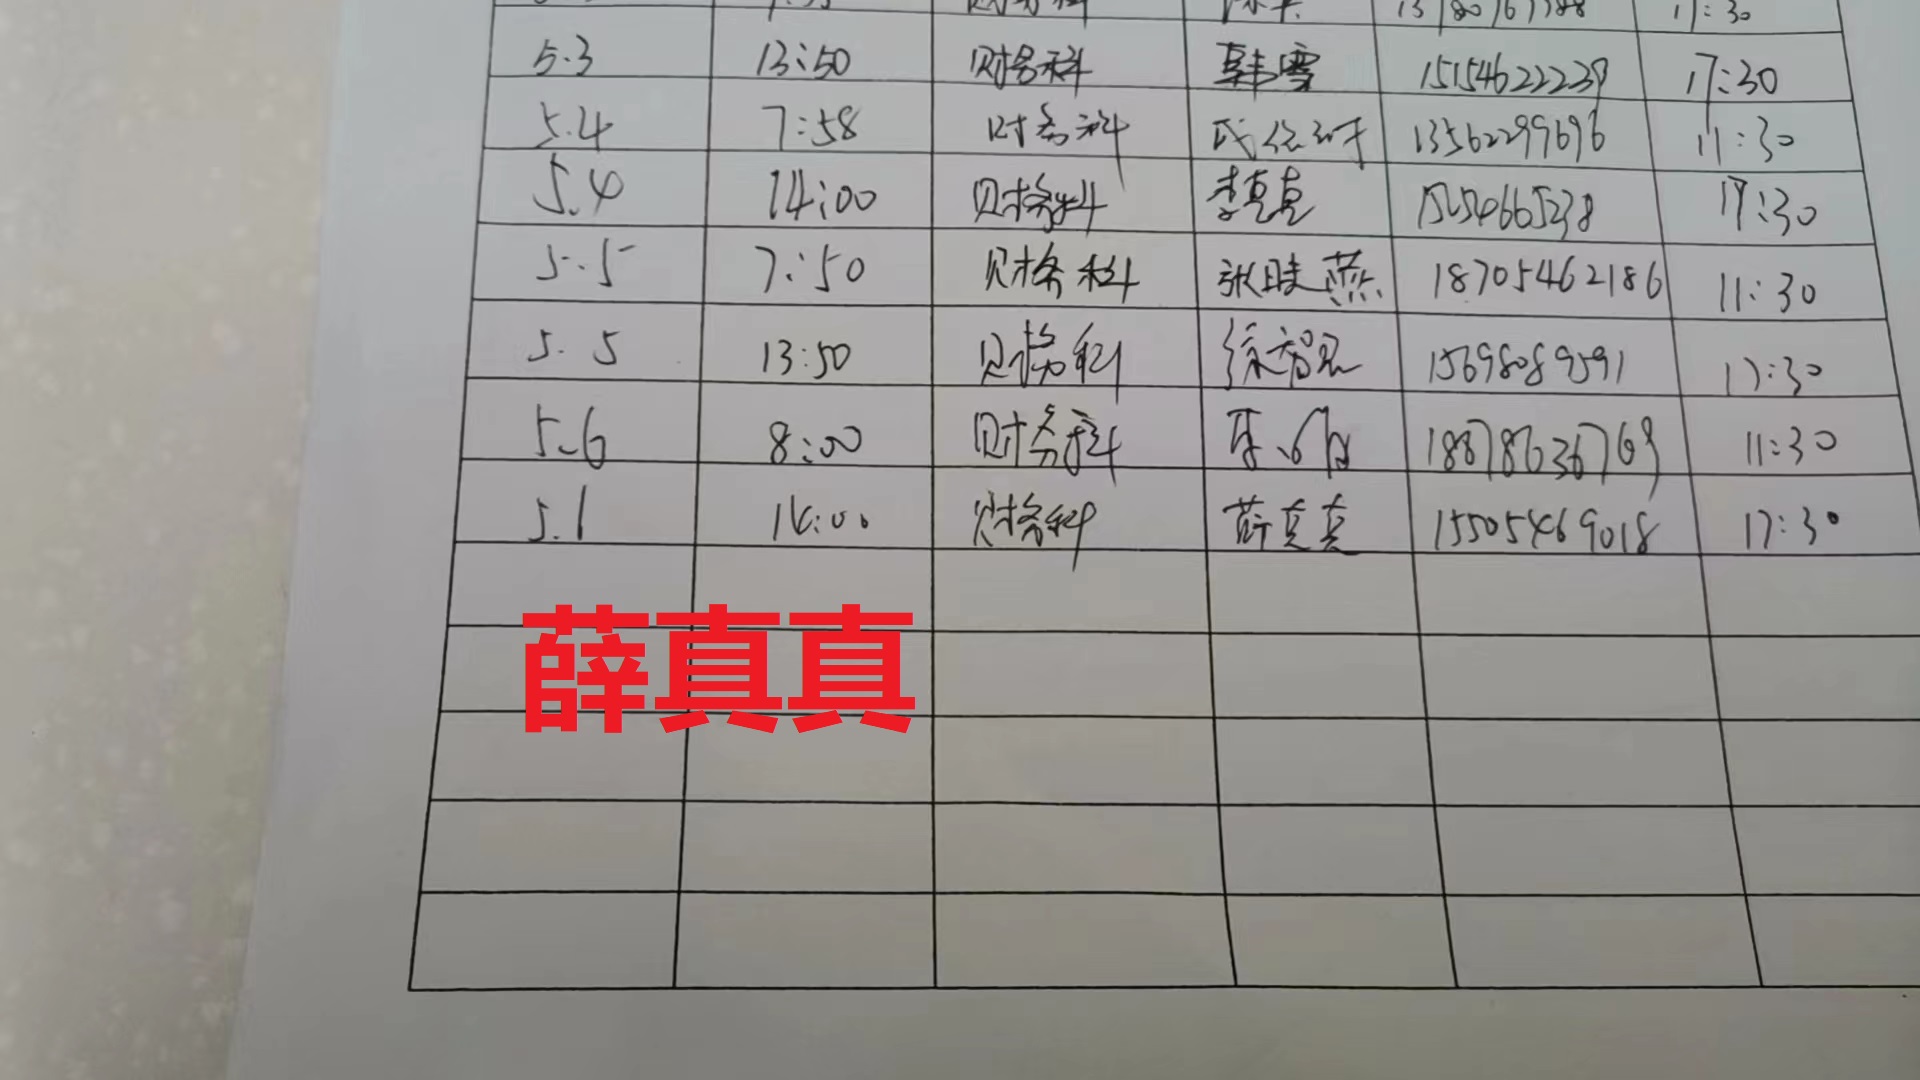 17:30
5.3 13:50 财务科 韩雪 15154622239 17:30
5.4 7:58 财务科 13562299696 11:30
5.4 14:00 财务科 李真真 15254665238 17:30
5.5 7:50 财务科 张晓燕 18705462186 11:30
5.5 13:50 财务科 徐智忍 15698089591 17:30
5.6 8:00 财务科 11:30
5.1 14:00 财务科 薛真真 15505469018 17:30
薛真真